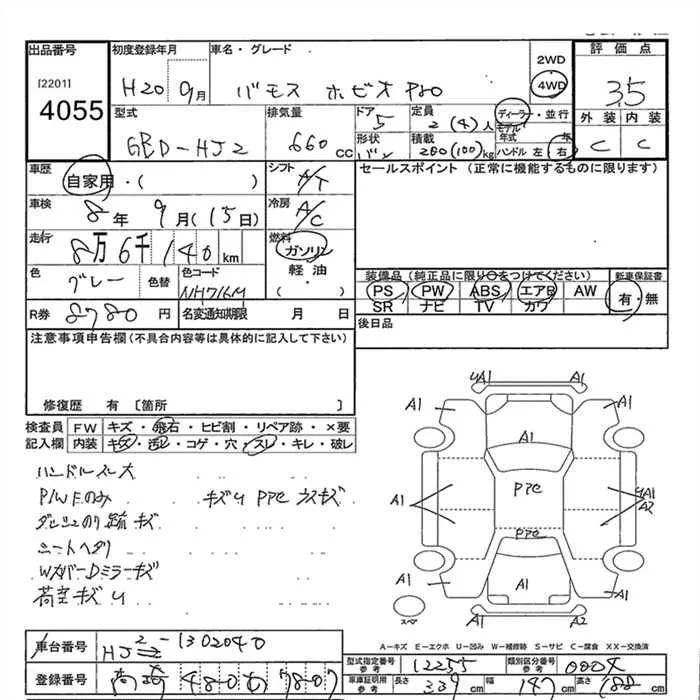 出品番号 初度登録年月 車名・グレード 2WD 評価点
[2201] H20 9月 バモス ホビオ Pro 4WD 3.5
4055 型式 排気量 ドア 定員 ディーラー・並行 外装 内装
GBD-HJ2 660cc 5 2(4)人 モデル年式 年 C C
形状 バン 積載 200(100)kg ハンドル 左・右
車歴 自家用・( ) シフト A/T セールスポイント(正常に機能するものに限ります)
車検 8年 9月(15日) 冷房 A/C
走行 8万6千140km 燃料 ガソリン 軽油・( )
色 グレー 色替 色コード NH716M 装備品(純正品に限り○をつけてください) 新車保証書
PS PW ABS エアB AW 有・無
SR ナビ TV カワ
R券 8780円 名変通知期限 月 日 後日品
注意事項申告欄(不具合内容等は具体的に記入して下さい)
修復歴 有 〔箇所 〕
検査員記入欄 FW キズ・飛石・ヒビ割・リペア跡・×要
内装 キズ・汚レ・コゲ・穴・スレ・キレ・破レ
ハンドルスレ大
P/W Fのみ キズU PPC ウスキズ
ダッシュのり跡 キズ
シートヘタリ
WカバーDミラーキズ
荷室キズU
UA1 A1
A1 A1
A1
A1 PPC UA1
A2
PPC
A1 A1 A1
スペア A1 A2
A-キズ E-エクボ U-凹み W-補修跡 S-サビ C-腐食 XX-交換済
車台番号 HJ2-1302040
型式指定番号 12255 類別区分番号 0004
登録番号 高崎 480 あ 78-07
車庫証明用参考 長さ 339cm 幅 147cm 高さ 188cm